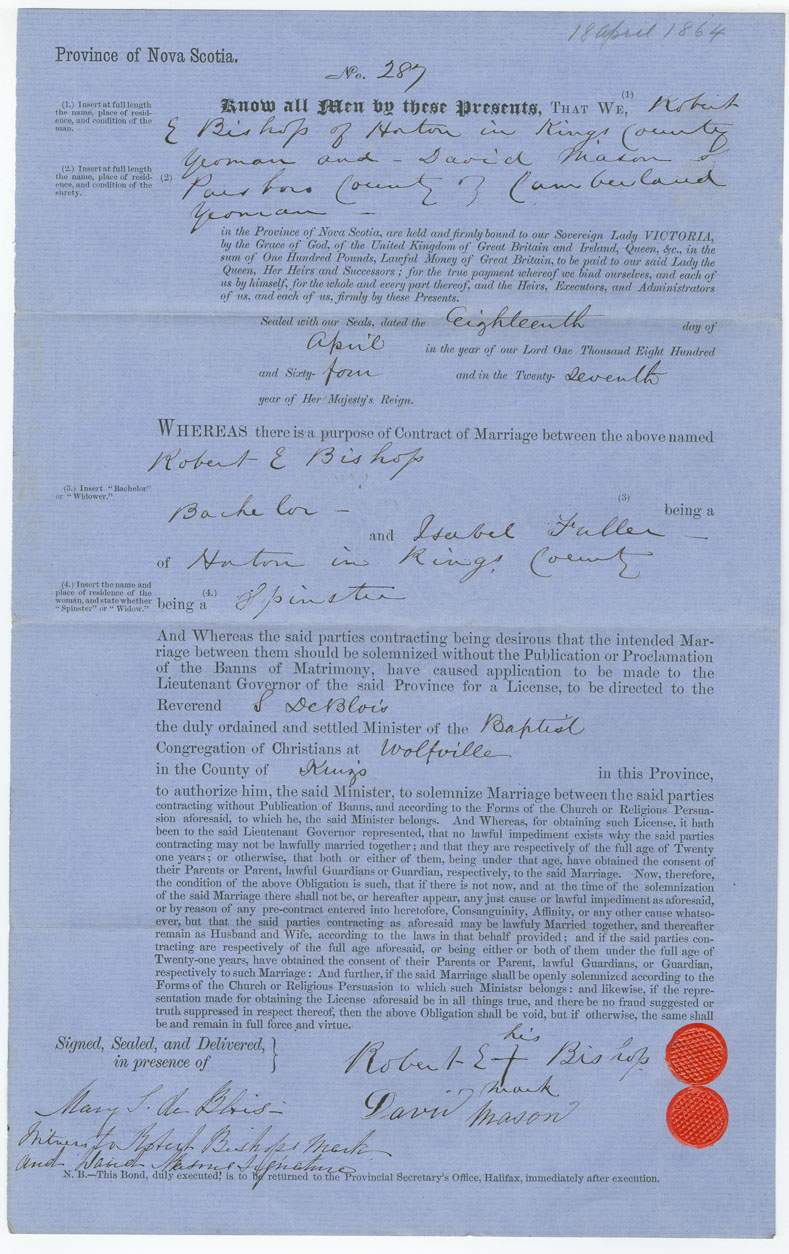 18 april 1864
Province of Nova Scotia.
No. 287
(1.) Insert at full length
the name, place of resid-
ence, and condition of the
man.
Know all Men by these Presents, THAT WE, (1) Robert
E Bishop of Horton in Kings County
Yeoman and - David Mason of
(2.) Insert at full length
the name, place of resid-
ence, and condition of the
surety.
(2) Parsboro County of Cumberland
Yeoman —
in the Province of Nova Scotia, are held and firmly bound to our Sovereign Lady VICTORIA,
by the Grace of God, of the United Kingdom of Great Britain and Ireland, Queen, &c., in the
sum of One Hundred Pounds, Lawful Money of Great Britain, to be paid to our said Lady the
Queen, Her Heirs and Successors; for the true payment whereof we bind ourselves, and each of
us by himself, for the whole and every part thereof, and the Heirs, Executors, and Administrators
of us, and each of us, firmly by these Presents.
Sealed with our Seals, dated the Eighteenth day of
April in the year of our Lord One Thousand Eight Hundred
and Sixty- four and in the Twenty- Seventh
year of Her Majesty's Reign.
WHEREAS there is a purpose of Contract of Marriage between the above named
Robert E Bishop
(3.) Insert "Bachelor"
or "Widower."
Bachelor — (3) being a
and Isabel Fuller —
of Horton in Kings County
(4.) Insert the name and
place of residence of the
woman, and state whether
"Spinster" or "Widow."
being a (4.) Spinster
And Whereas the said parties contracting being desirous that the intended Mar-
riage between them should be solemnized without the Publication or Proclamation
of the Banns of Matrimony, have caused application to be made to the
Lieutenant Governor of the said Province for a License, to be directed to the
Reverend S DeBlois
the duly ordained and settled Minister of the Baptist
Congregation of Christians at Wolfville
in the County of Kings in this Province,
to authorize him, the said Minister, to solemnize Marriage between the said parties
contracting without Publication of Banns, and according to the Forms of the Church or Religious Persua-
sion aforesaid, to which he, the said Minister belongs. And Whereas, for obtaining such License, it hath
been to the said Lieutenant Governor represented, that no lawful impediment exists why the said parties
contracting may not be lawfully married together; and that they are respectively of the full age of Twenty
one years; or otherwise, that both or either of them, being under that age, have obtained the consent of
their Parents or Parent, lawful Guardians or Guardian, respectively, to the said Marriage. Now, therefore,
the condition of the above Obligation is such, that if there is not now, and at the time of the solemnization
of the said Marriage there shall not be, or hereafter appear, any just cause or lawful impediment as aforesaid,
or by reason of any pre-contract entered into heretofore, Consanguinity, Affinity, or any other cause whatso-
ever, but that the said parties contracting as aforesaid may be lawfuly Married together, and thereafter
remain as Husband and Wife, according to the laws in that behalf provided; and if the said parties con-
tracting are respectively of the full age aforesaid, or being either or both of them under the full age of
Twenty-one years, have obtained the consent of their Parents or Parent, lawful Guardians, or Guardian,
respectively to such Marriage: And further, if the said Marriage shall be openly solemnized according to the
Forms of the Church or Religious Persuasion to which such Ministsr belongs: and likewise, if the repre-
sentation made for obtaining the License aforesaid be in all things true, and there be no fraud suggested or
truth suppressed in respect thereof, then the above Obligation shall be void, but if otherwise, the same shall
be and remain in full force and virtue.
Signed, Sealed, and Delivered,
in presence of
his
Robert E + Bishop
mark
Mary S. de Blois —
David Mason
Witness to Robert Bishops mark
and David Masons signature
N. B.—This Bond, duly executed, is to be returned to the Provincial Secretary's Office, Halifax, immediately after execution.